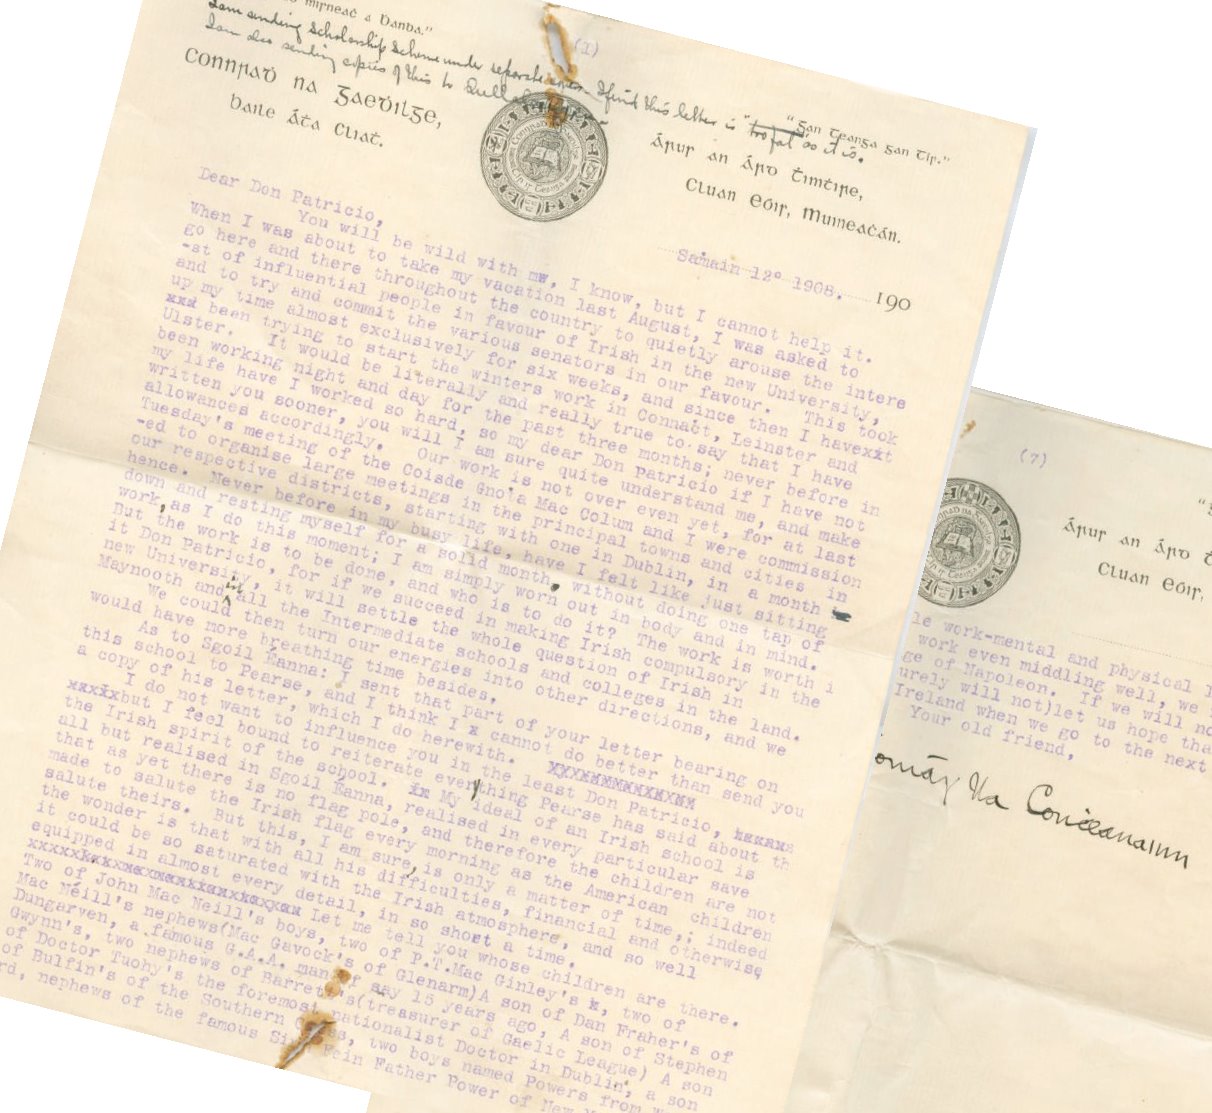 mırneaċ a banba."
(1)
I am sending Scholarship Scheme under separate cover. I find this letter is too fat as it is.
I am also sending copies of this to
Connraḋ na Gaeḋilge,
Baile Áṫa Cliaṫ.
"Gan Teanga gan Tír."
Árur an Árd Ṫimtire,
Cluan Eóir, Muineaċán.
Samain 12º 1908. 190
Dear Don Patricio,
You will be wild with me, I know, but I cannot help it.
When I was about to take my vacation last August, I was asked to
go here and there throughout the country to quietly arouse the intere
-st of influential people in favour of Irish in the new University,
and to try and commit the various senators in our favour. This took
up my time almost exclusively for six weeks, and since then I havexxt
xxx been trying to start the winters work in Connaċt, Leinster and
Ulster. It would be literally and really true to say that I have
been working night and day for the past three months; never before in
my life have I worked so hard, so my dear Don Patricio if I have not
written you sooner, you will I am sure quite understand me, and make
allowances accordingly. Our work is not over even yet, for at last
Tuesday's meeting of the Coisde Gnóta Mac Colum and I were commission
-ed to organise large meetings in the principal towns and cities in
our respective districts, starting with one in Dublin, in a month
hence. Never before in my busy life, have I felt like just sitting
down and resting myself for a solid month, without doing one tap of
work, as I do this moment; I am simply worn out in body and in mind.
But the work is to be done, and who is to do it? The work is worth i
it Don Patricio, for if we succeed in making Irish compulsory in the
new University, it will settle the whole question of Irish in
Maynooth and in all the Intermediate schools and colleges in the land.
We could then turn our energies into other directions, and we
would have more breathing time besides.
As to Sgoil Éanna: I sent that part of your letter bearing on
this school to Pearse, and I think I x cannot do better than send you
a copy of his letter, which I do herewith. xxxxxxxxxxxxxxx
I do not want to influence you in the least Don Patricio, xxxxxx
xxxxxbut I feel bound to reiterate everything Pearse has said about th
the Irish spirit of the school. My ideal of an Irish school is
all but realised in Sgoil Éanna, realised in every particular save
that as yet there is no flag pole, and therefore the children are not
made to salute the Irish flag every morning as the American children
salute theirs. But this, I am sure, is only a matter of time,; indeed
the wonder is that with all his difficulties, financial and otherwise,
it could be so saturated with the Irish atmosphere, and so well
equipped in almost every detail, in so short a time.
xxxxxxxxxxxxxxxxxxxxxxxxxx Let me tell you whose children are there.
Two of John Mac Neill's boys, two of P.T.Mac Ginley's x, two of
Mac Néill's nephews(Mac Gavock's of Glenarm)A son of Dan Fraher's of
Dungarven, a famous G.A.A. man of say 15 years ago, A son of Stephen
Gwynn's, two nephews of Barrett's(treasurer of Gaelic League) A son
of Doctor Tuohy's the foremost nationalist Doctor in Dublin, a son
of Bulfin's of the Southern Cross, two boys named Powers from
rd, nephews of the famous Sinn Fein Father Power of New
(7)
Árur an Árd
Cluan Eóir,
le work-mental and physical
work even middling well, we
ge of Napoleon. If we will no
urely will not)let us hope tha
Ireland when we go to the next
Your old friend,
omáy Ua Conceanainn